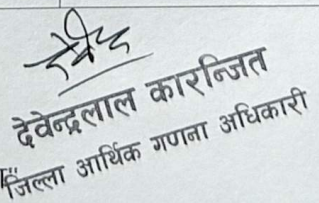 देवेन्द्रलाल कारन्जित
जिल्ला आर्थिक गणना अधिकारी